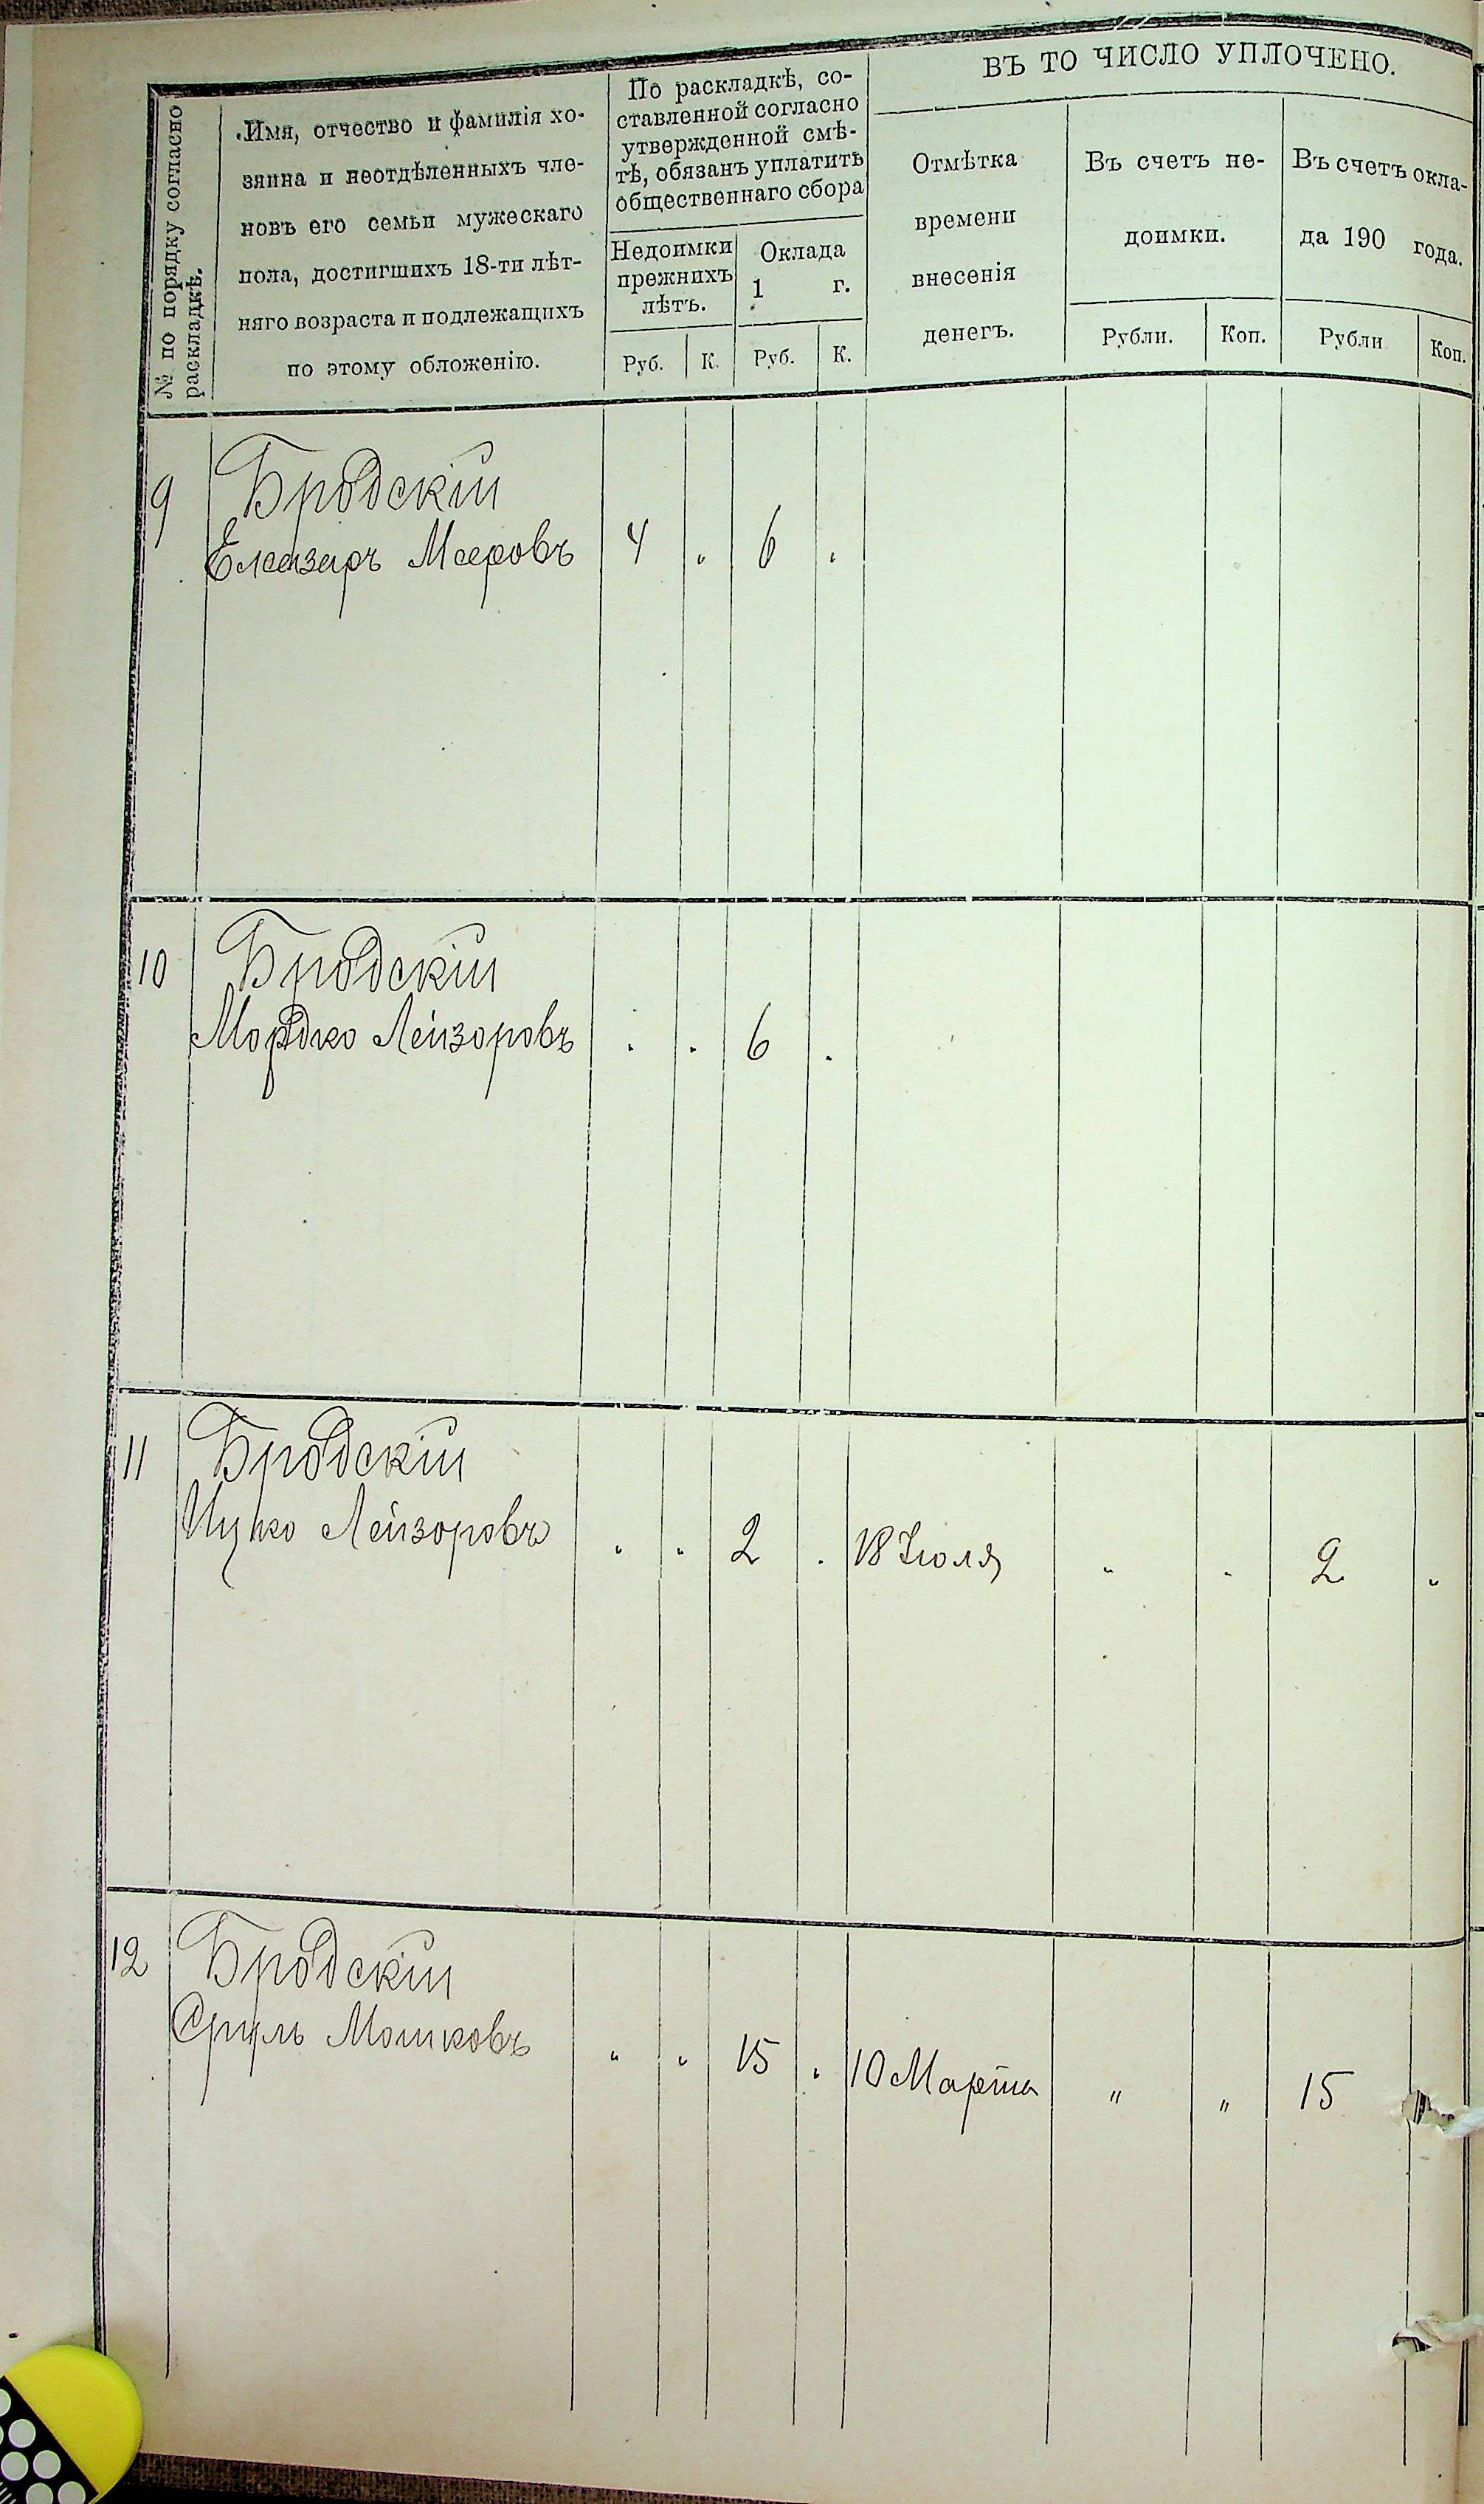 № по порядку согласно
раскладкѣ.
Имя, отчество и фамилія хо-
зяина и неотдѣленныхъ чле-
новъ его семьи мужескаго
пола, достигшихъ 18-ти лѣт-
няго возраста и подлежащихъ
по этому обложенію.
По раскладкѣ, со-
ставленной согласно
утвержденной смѣ-
тѣ, обязанъ уплатить
общественнаго сбора
Недоимки
прежнихъ
лѣтъ.
Руб. К.
Оклада
1 г.
Руб. К.
ВЪ ТО ЧИСЛО УПЛОЧЕНО.
Отмѣтка
времени
внесенія
денегъ.
Въ счетъ не-
доимки.
Рубли. Коп.
Въ счетъ окла-
да 190 года.
Рубли Коп.
9 Бродскій
Елеазаръ Мееровъ 4 „ 6 „
10 Бродскій
Мордко Лейзоровъ „ „ 6 „
11 Бродскій
Ицко Лейзоровъ „ „ 2 „ 18 Іюля „ „ 2 „
12 Бродскій
Сруль Мошковъ „ „ 15 „ 10 Марта „ „ 15 „